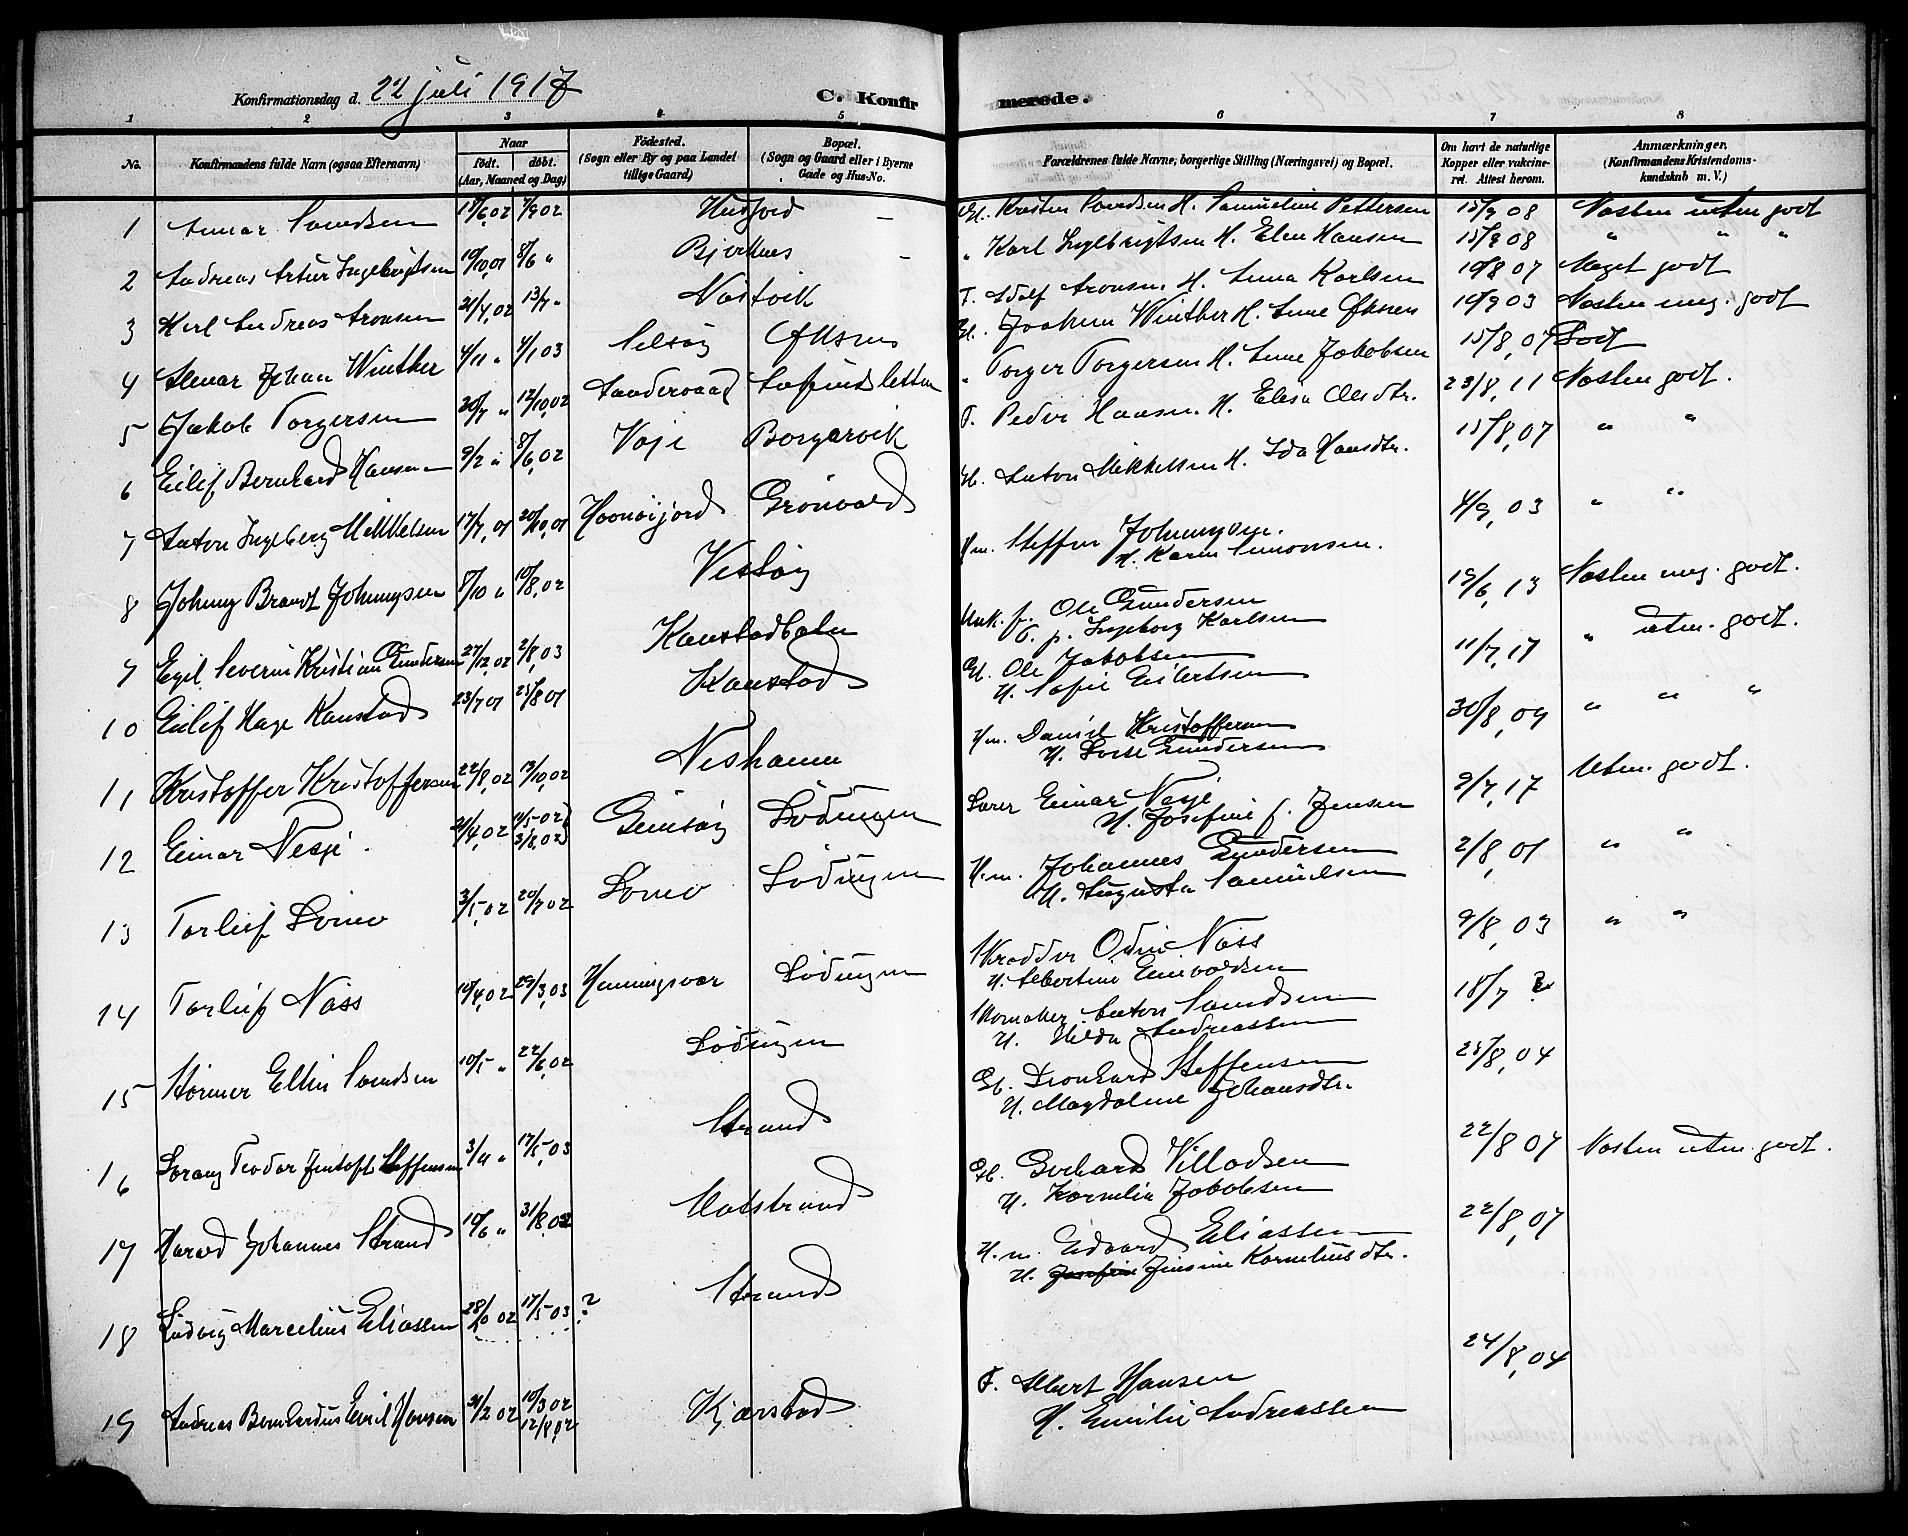 Konfirmationsdag d. 22 juli 1917
C. Konfirmerede.
1 2 3 4 5 6 7 8
No. Konfirmandens fulde Navn (ogsaa Efternavn) Naar født. døbt. (Aar, Maaned og Dag) Fødested. (Sogn eller By og paa Landet tillige Gaard) Bopæl. (Sogn og Gaard eller i Byerne Gade og Hus-No. Forældrenes fulde Navne, borgerlige Stilling (Næringsvei) og Bopæl. Om havt de naturlige Kopper eller vakcineret. Attest herom. Anmærkninger. (Konfirmandens Kristendomskundskab m. V.)
1 Samdsen 7/9 02 – Kristen Samdsen H. Samueline Pettersen 15/9 08 Næsten utm. godt
2 Andreas Artur Ingebrigtsen 19/10,01 8/6 " Bjerknes – " Karl Ingebrigtsen H. Elen Hansen 15/9 08 " " "
3 Karl Andreas Aronsen 21/4,02 13/7 " Næstvik F. Adolf Aronsen H. Anna Karlsen 19/8 07 Meget godt
4 Johan Winther 4/11 " 4/1 03 Selsøy Joakim Winther H. Anne 19/9 03 Næsten meg. godt
5 Jakob Torgersen 20/7 " 12/10,02 Sandervaag " Torger Torgersen H. Anne Jakobsen 15/8,07 Godt
6 Eilif Bernhard Hansen 9/2 " 8/6,02 Voje Borgarvik F. Peder Hansen H. Elisa Olesdtr. 23/8,11 Næsten godt.
7 Anton Ingeberg Mikkelsen 17/7,01 20/10,01 Grönvald Anton Mikkelsen H. Ida Hansdtr. 15/8,07 " "
8 Johnny Brandt Johnnysen 8/10 " 10/8,02 Vestøy Hm. Steffen Johnnysen H. Karen Simonsen. 4/9,03 " "
9 Egil Severin Kristian Gundersen 27/12,02 2/8,03 Kanstadbotn Unk. f. Ole Gundersen
p. Ingeborg Karlsen 19/6,13 Næsten meg. godt.
10 Eilif Hage Kanstad 23/7 01 25/8 01 Kanstad Ole Jakobsen
H. Sofie Eilertsen 11/7,17 " utm. godt.
11 Kristoffer Kristoffersen 22/8,02 19/10,02 Neshamn Hm. Daniel Kristoffersen
H. Dorte Gundersen 30/8,09 " " "
12 Einar Nesje. 21/4,02 11/5-02
3/8,02 Gimsøy Lødingen Lærer Einar Nesje
H. Josefine f. Jensen 9/7,17 Utm. godt.
13 Torleif 3/5,02 20/7 02 Lødingen H.m. Johannes Gundersen
H. Augusta Samuelsen 2/8,01 " "
14 Torleif Næss 19/4,02 29/3,03 Henningsvær Lødingen Skredder Odin Næss
H. Albertine Enevoldsen 9/8,03 " "
15 Størmer Eltin Samdsen 10/5 " 22/6,02 Lødingen Skomaker Anton Samdsen
H. Hilda Andreassen 18/7
16 Jentoft Steffensen 3/11 " 17/5,03 Strand Leonhard Steffensen
H. Magdaline Johansdtr. 25/8,04
17 Harald Johannes Strand 19/6 " 31/8,02 Matstrand Gerhard Villadsen
H. Kornelia Jakobsen 22/8 07 Næsten utm. godt.
18 Ludvig Marcelius Eliassen 28/10 02 17/5 03 ? Strand H.m. Edvard Eliassen
H. Jensine Korneliusdtr. 22/8,07
19 Andreas Bernhardus Emil Hansen 21/2 02 10/3 02
12/8,02 Kjærstad F. Albert Hansen
H. Emilie Andreassen 24/8,04